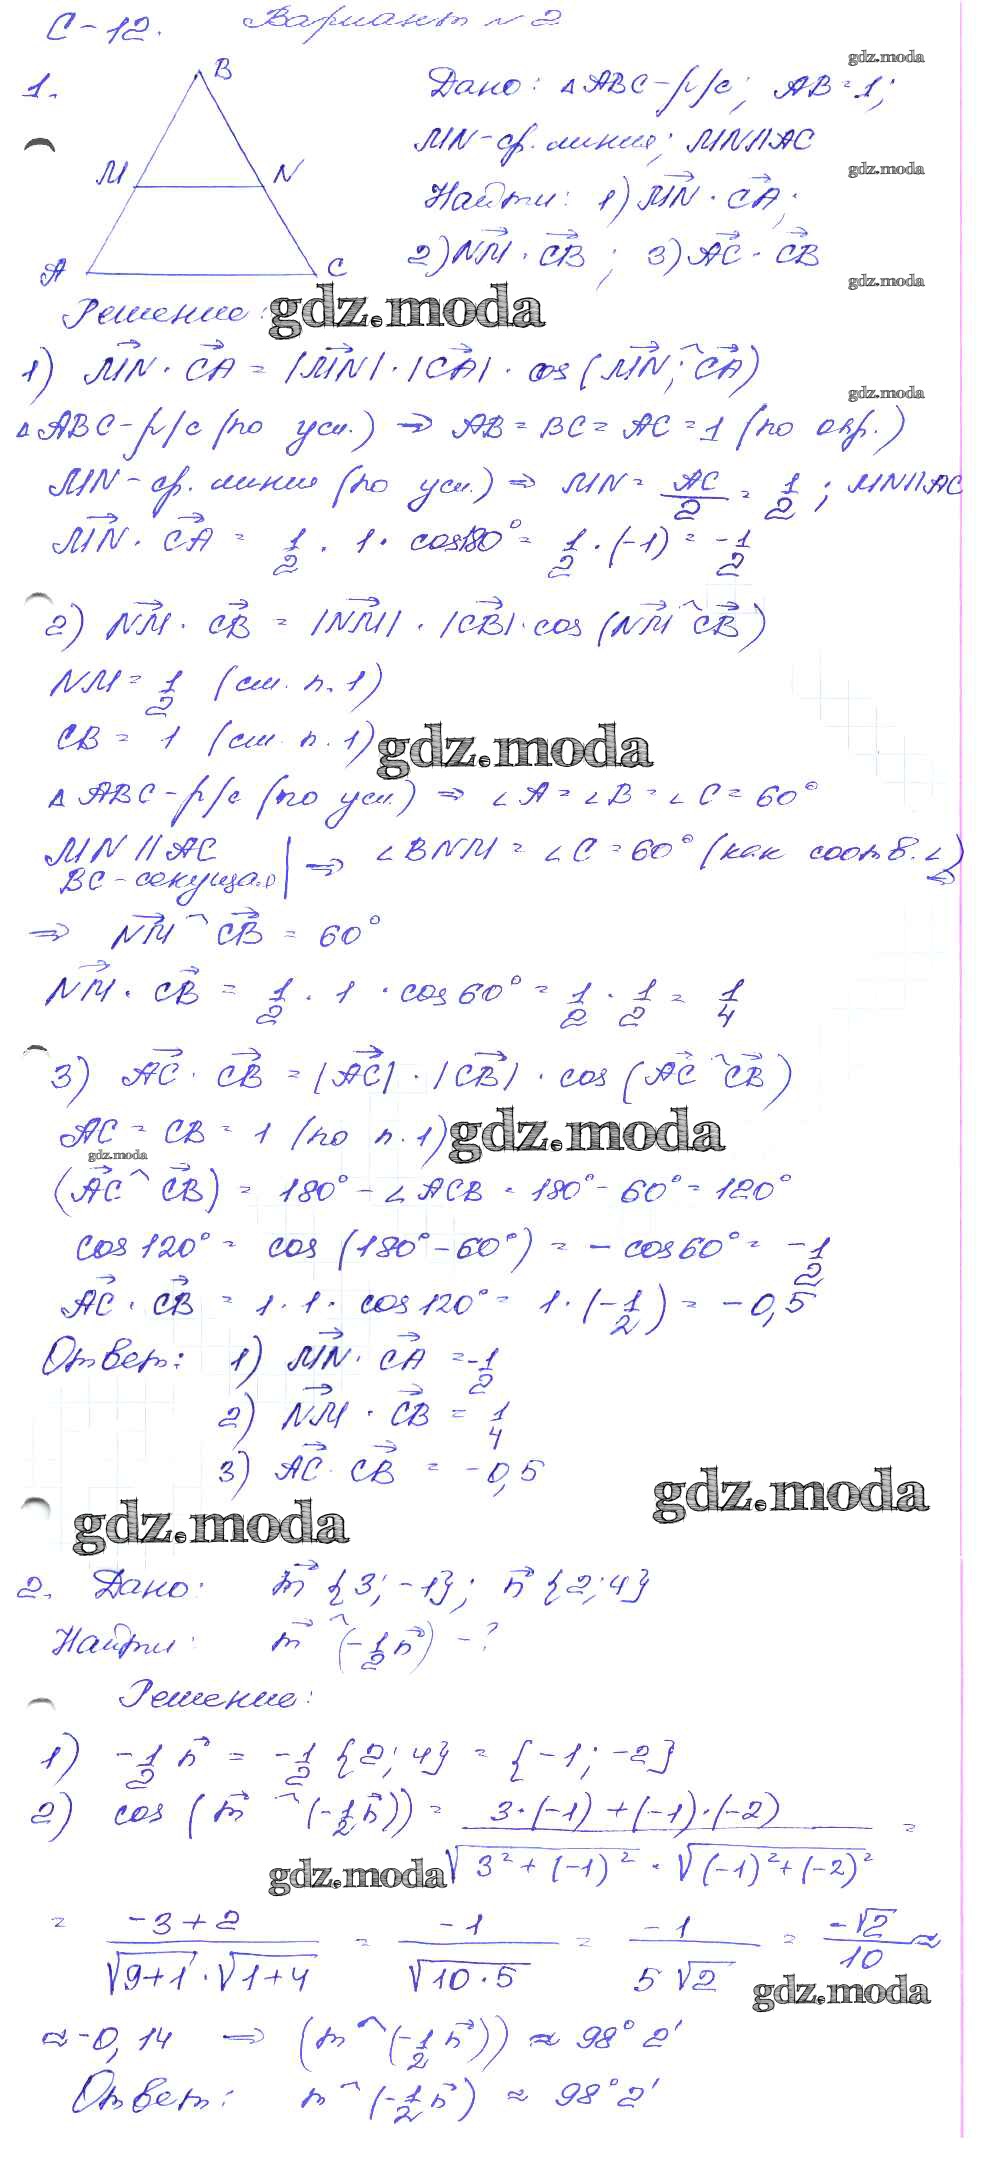 С-12. Вариант №2
gdz.moda
1.
B
M N
A C
Дано: △ABC-р/с; AB=1;
MN-ср. линия; MN||AC
gdz.moda
Найти: 1) MN⃗ · CA⃗;
2) NM⃗ · CB⃗; 3) AC⃗ · CB⃗
gdz.moda
Решение:
gdz.moda
1) MN⃗ · CA⃗ = |MN⃗| · |CA⃗| · cos (MN⃗ ^; CA⃗)
gdz.moda
△ABC-р/с (по усл.) ⇒ AB = BC = AC = 1 (по опр.)
MN-ср. линия (по усл.) ⇒ MN = AC/2 = 1/2; MN||AC
MN⃗ · CA⃗ = 1/2 · 1 · cos180° = 1/2 · (-1) = -1/2
2) NM⃗ · CB⃗ = |NM⃗| · |CB⃗| · cos (NM⃗ ^ CB⃗)
NM = 1/2 (см. п. 1)
CB = 1 (см. п. 1)
gdz.moda
△ABC-р/с (по усл.) ⇒ ∠A = ∠B = ∠C = 60°
MN || AC
BC-секущая | ⇒ ∠BNM = ∠C = 60° (как соотв. ∠)
⇒
⇒ NM⃗ ^ CB⃗ = 60°
NM⃗ · CB⃗ = 1/2 · 1 · cos60° = 1/2 · 1/2 = 1/4
3) AC⃗ · CB⃗ = |AC⃗| · |CB⃗| · cos (AC⃗ ^ CB⃗)
AC = CB = 1 (по п. 1)
gdz.moda
gdz.moda
(AC⃗ ^ CB⃗) = 180° - ∠ACB = 180° - 60° = 120°
cos120° = cos (180° - 60°) = - cos60° = -1/2
AC⃗ · CB⃗ = 1 · 1 · cos120° = 1 · (-1/2) = -0,5
Ответ: 1) MN⃗ · CA⃗ = -1/2
2) NM⃗ · CB⃗ = 1/4
3) AC⃗ · CB⃗ = -0,5
gdz.moda
gdz.moda
2. Дано: m⃗ {3; -1}; n⃗ {2; 4}
Найти: m⃗ ^ (-1/2 n⃗) - ?
Решение:
1) -1/2 n⃗ = -1/2 {2; 4} = {-1; -2}
2) cos (m⃗ ^ (-1/2 n⃗)) = (3·(-1) + (-1)·(-2)) / (√(3² + (-1)²) · √((-1)² + (-2)²)) =
gdz.moda
= (-3+2) / (√(9+1) · √(1+4)) = -1 / √(10·5) = -1 / (5√2) = -√2 / 10 ≈
gdz.moda
≈ -0,14 ⇒ (m⃗ ^ (-1/2 n⃗)) ≈ 98°2'
Ответ: m ^ (-1/2 n⃗) ≈ 98°2'